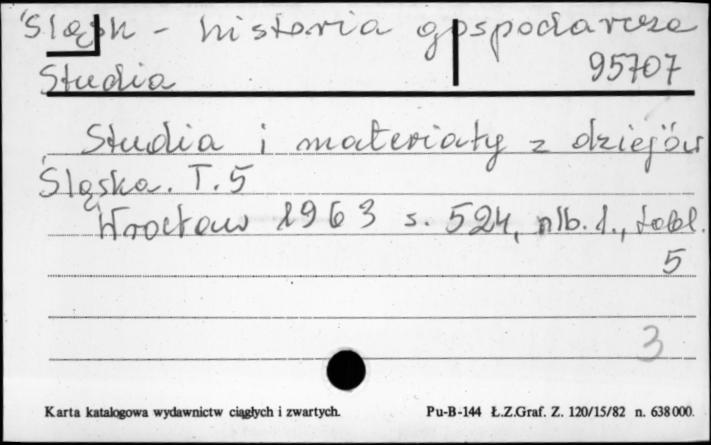 Śląsk - historia gospodarcza
Studia 95707
Studia i materiały z dziejów
Śląska. T. 5
Wrocław 1963 s. 524, nlb. 1., tabl.
5
3
Karta katalogowa wydawnictw ciągłych i zwartych. Pu-B-144 Ł.Z.Graf. Z. 120/15/82 n. 638000.